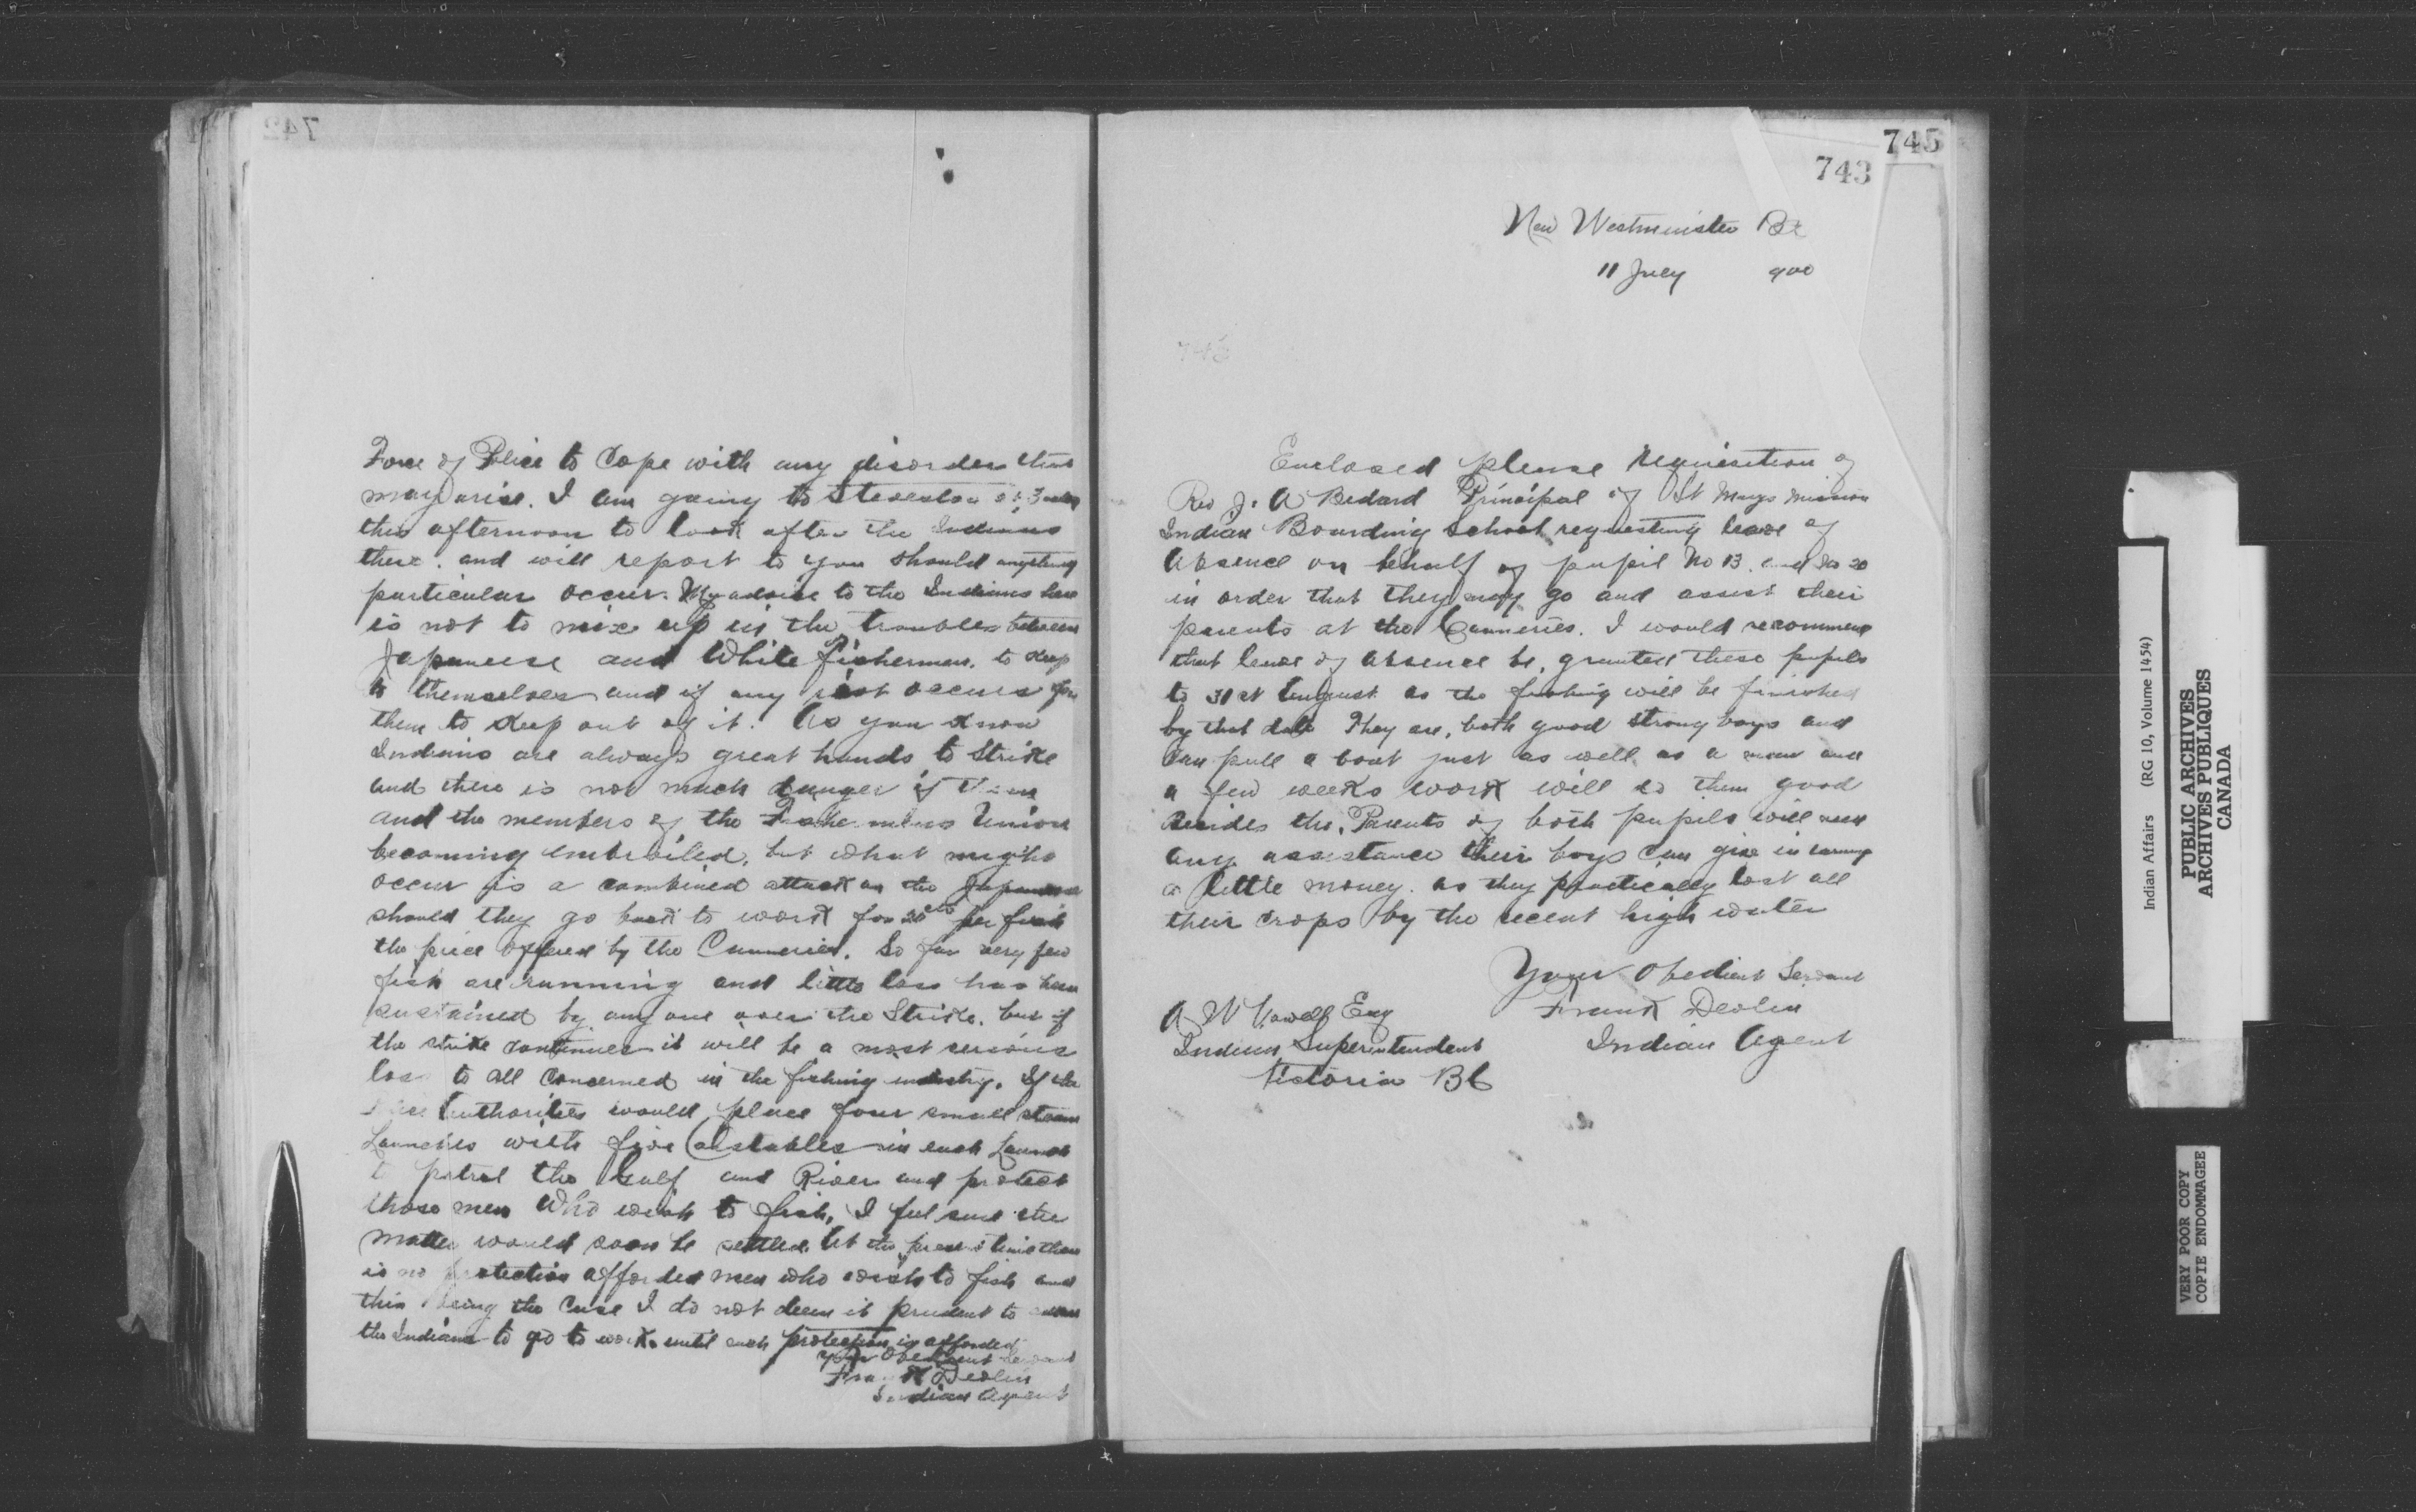 742
Force of Police to Cope with any disorder that
may arise. I am going to Steveston
this afternoon to look after the Indians
there. and will report to you should anything
particular occur. My advice to the Indians here
is not to mix up in the troubles between
Japaneese and White fisherman. to keep
to themselves and if any riot occurs for
them to keep out of it. As you know
Indians are always great hands to Strike
and there is not much danger of them
and the members of the Fishermens Union
becoming embroiled, but what might
occur is a combined attack on the Japanese
should they go back to work for 20cts per fish
the price offered by the Canneries. So far very few
fish are running and little loss has been
sustained by any one over the Strike. but if
the strike continues it will be a most serious
loss to all Concerned in the fishing industry. If the
Authorities would place four small steam
Launches with five Constables in each Launch
to patrol the Gulf and River and protect
those men who wish to fish, I feel sure the
matter would soon be settled. At the present time there
is no protection afforded men who wish to fish and
this being the Case I do not deem it prudent to
the Indians to go to work until such protection is afforded
Your Obedient Servant
Frank Devlin
Indian Agent
745
743
New Westminster BC
11 July 900
743
Enclosed please requisition of
Rev J. A Bedard Principal of St Marys Mission
Indian Boarding School requesting leave of
Absence on behalf of pupil No 13. and No 20
in order that they may go and assist their
parents at the Canneries. I would recommend
that leave of absence be, granted these pupils
to 31st August as the fishing will be finished
by that date They are, both good strong boys and
Can pull a boat just as well as a man and
a few weeks work will do them good
Besides the, Parents of both pupils will need
any assistance their boys Can give in earning
a little money. as they practically lost all
their crops by the recent high water
Your Obedient Servant
Frank Devlin
Indian Agent
A W Vowell Esq
Indian Superintendent
Victoria BC
Indian Affairs (RG 10, Volume 1454)
PUBLIC ARCHIVES
ARCHIVES PUBLIQUES
CANADA
VERY POOR COPY
COPIE ENDOMMAGEE